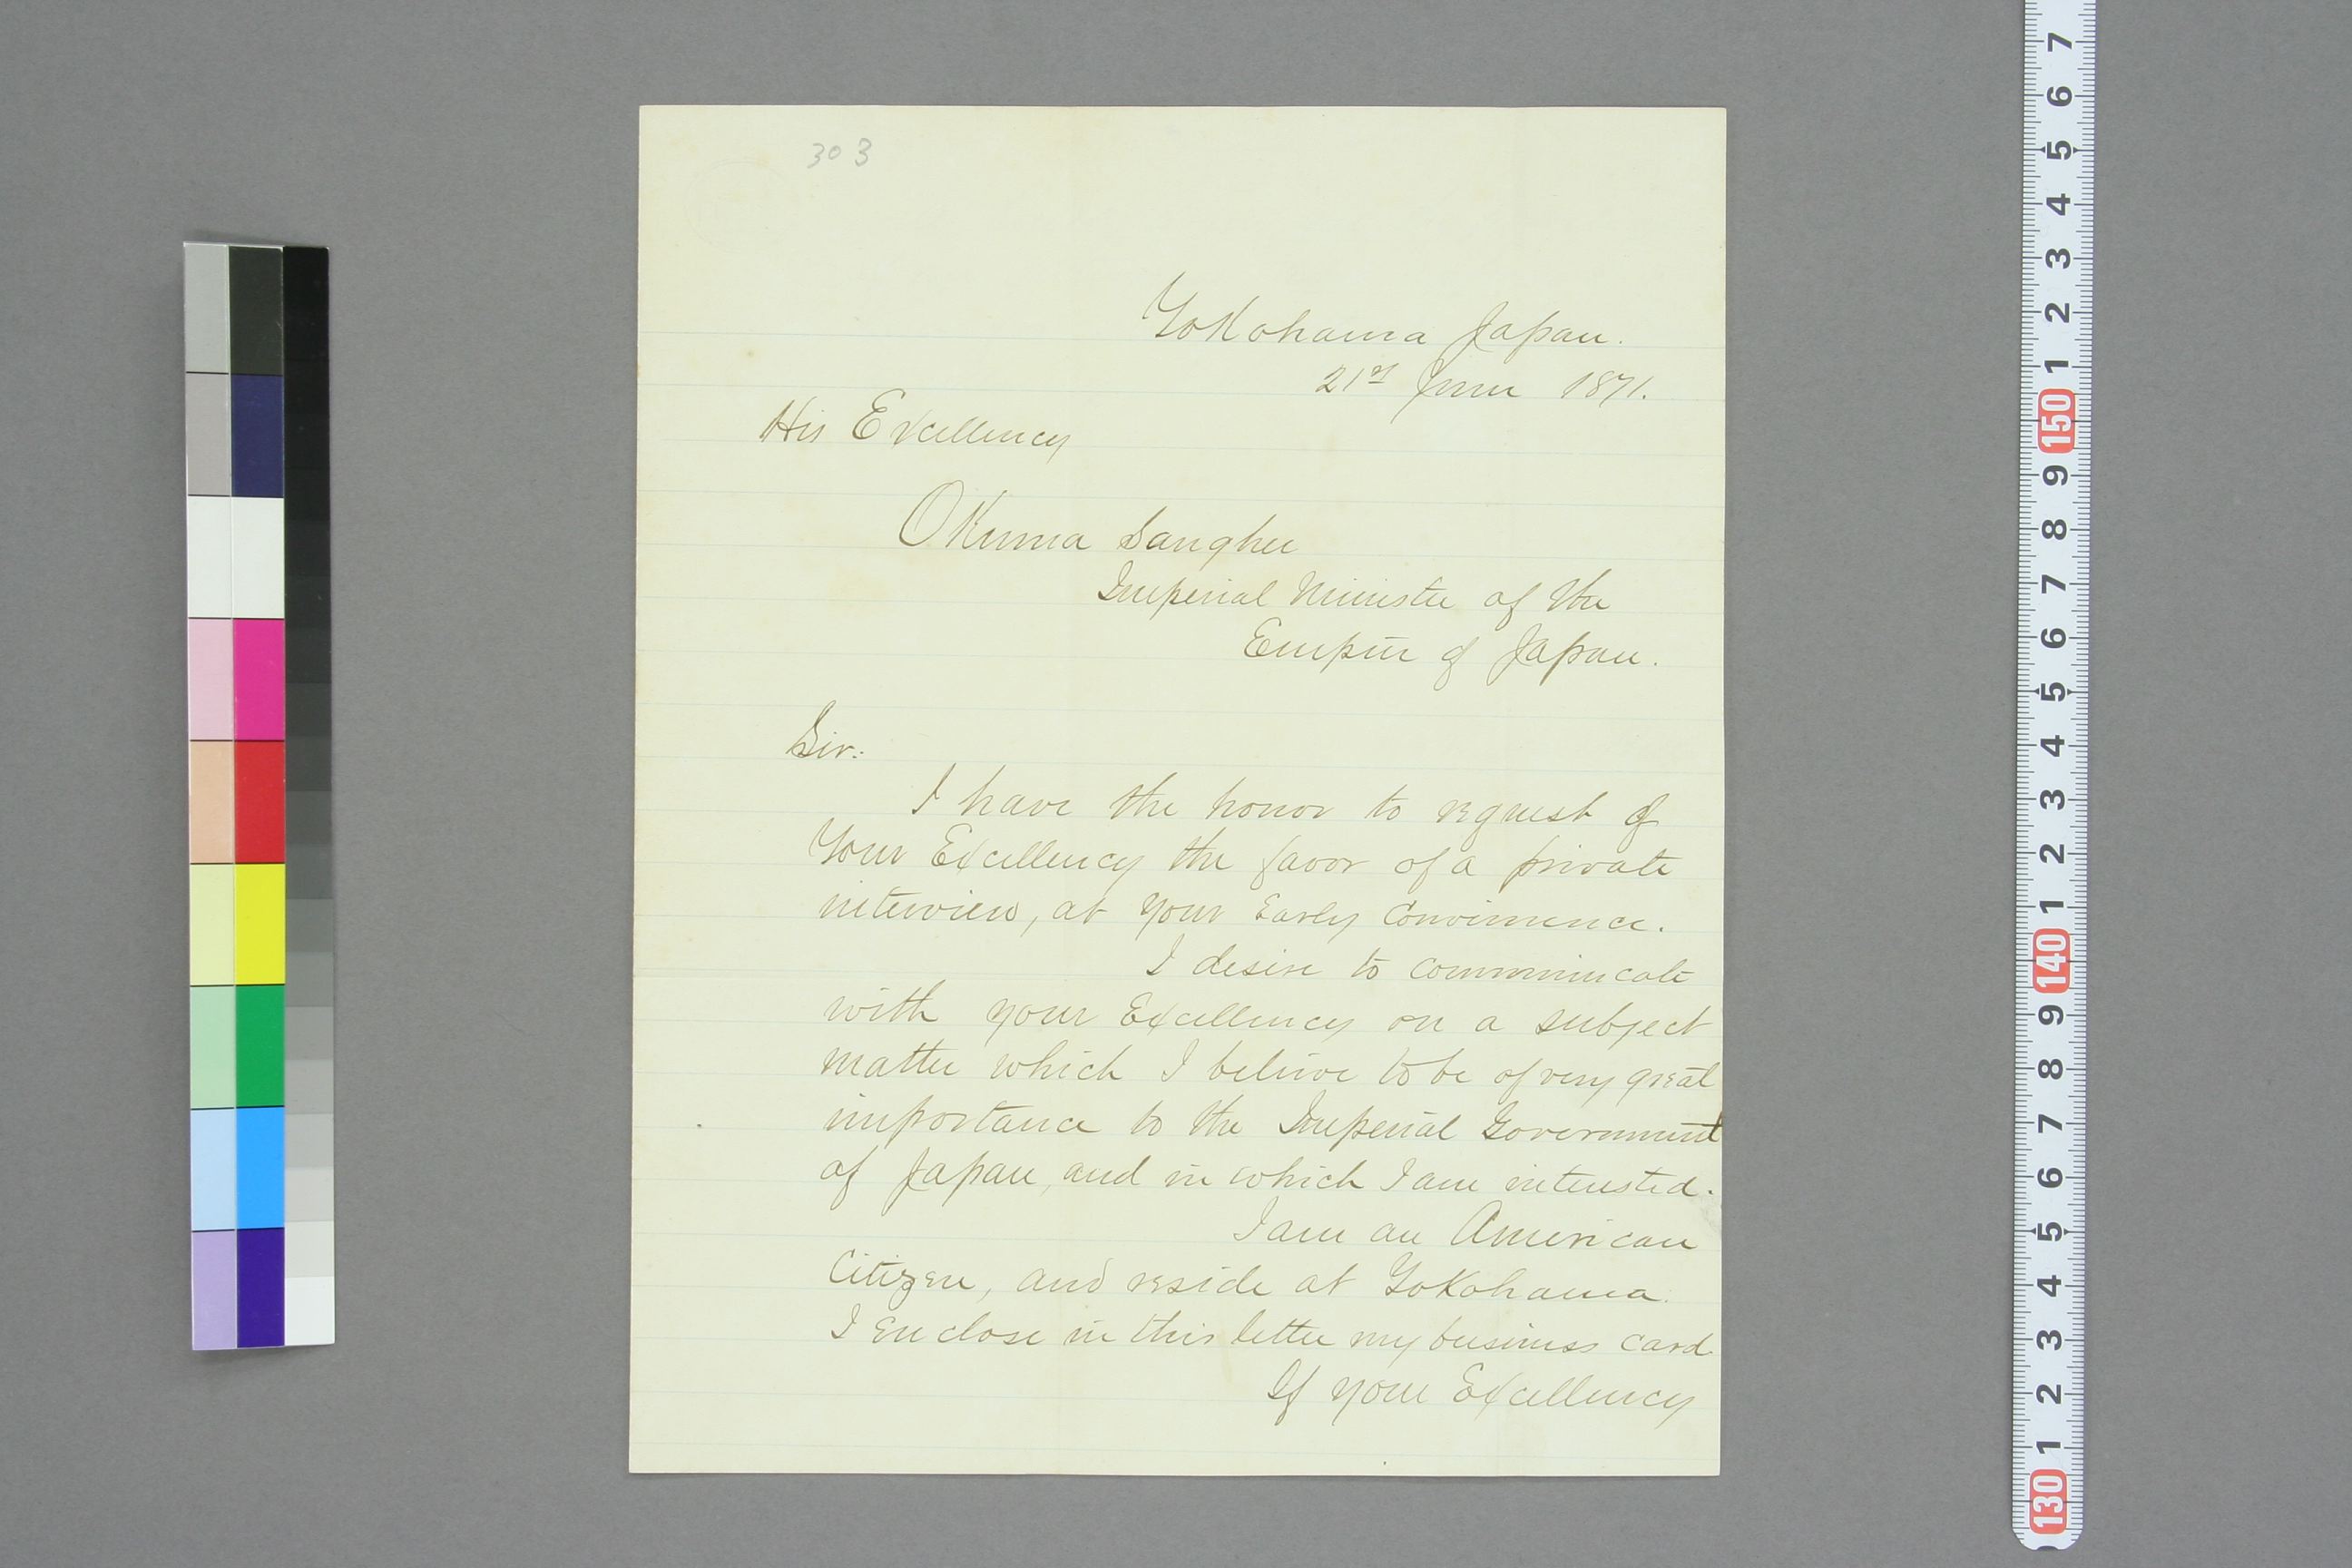 303
Yokohama Japan.
21st June 1871.
His Excellency
Okuma Sanghee
Imperial Minister of the
Empire of Japan.
Sir:
I have the honor to request of
Your Excellency the favor of a private
interview, at your Early Convenience.
I desire to communicate
with your Excellency on a subject
matter which I believe to be of very great
importance to the Imperial Government
of Japan, and in which I am interested.
I am an American
Citizen, and reside at Yokohama.
I Enclose in this letter my business card
If your Excellency
7
6
5
4
3
2
1
150
9
8
7
6
5
4
3
2
1
140
9
8
7
6
5
4
3
2
1
130